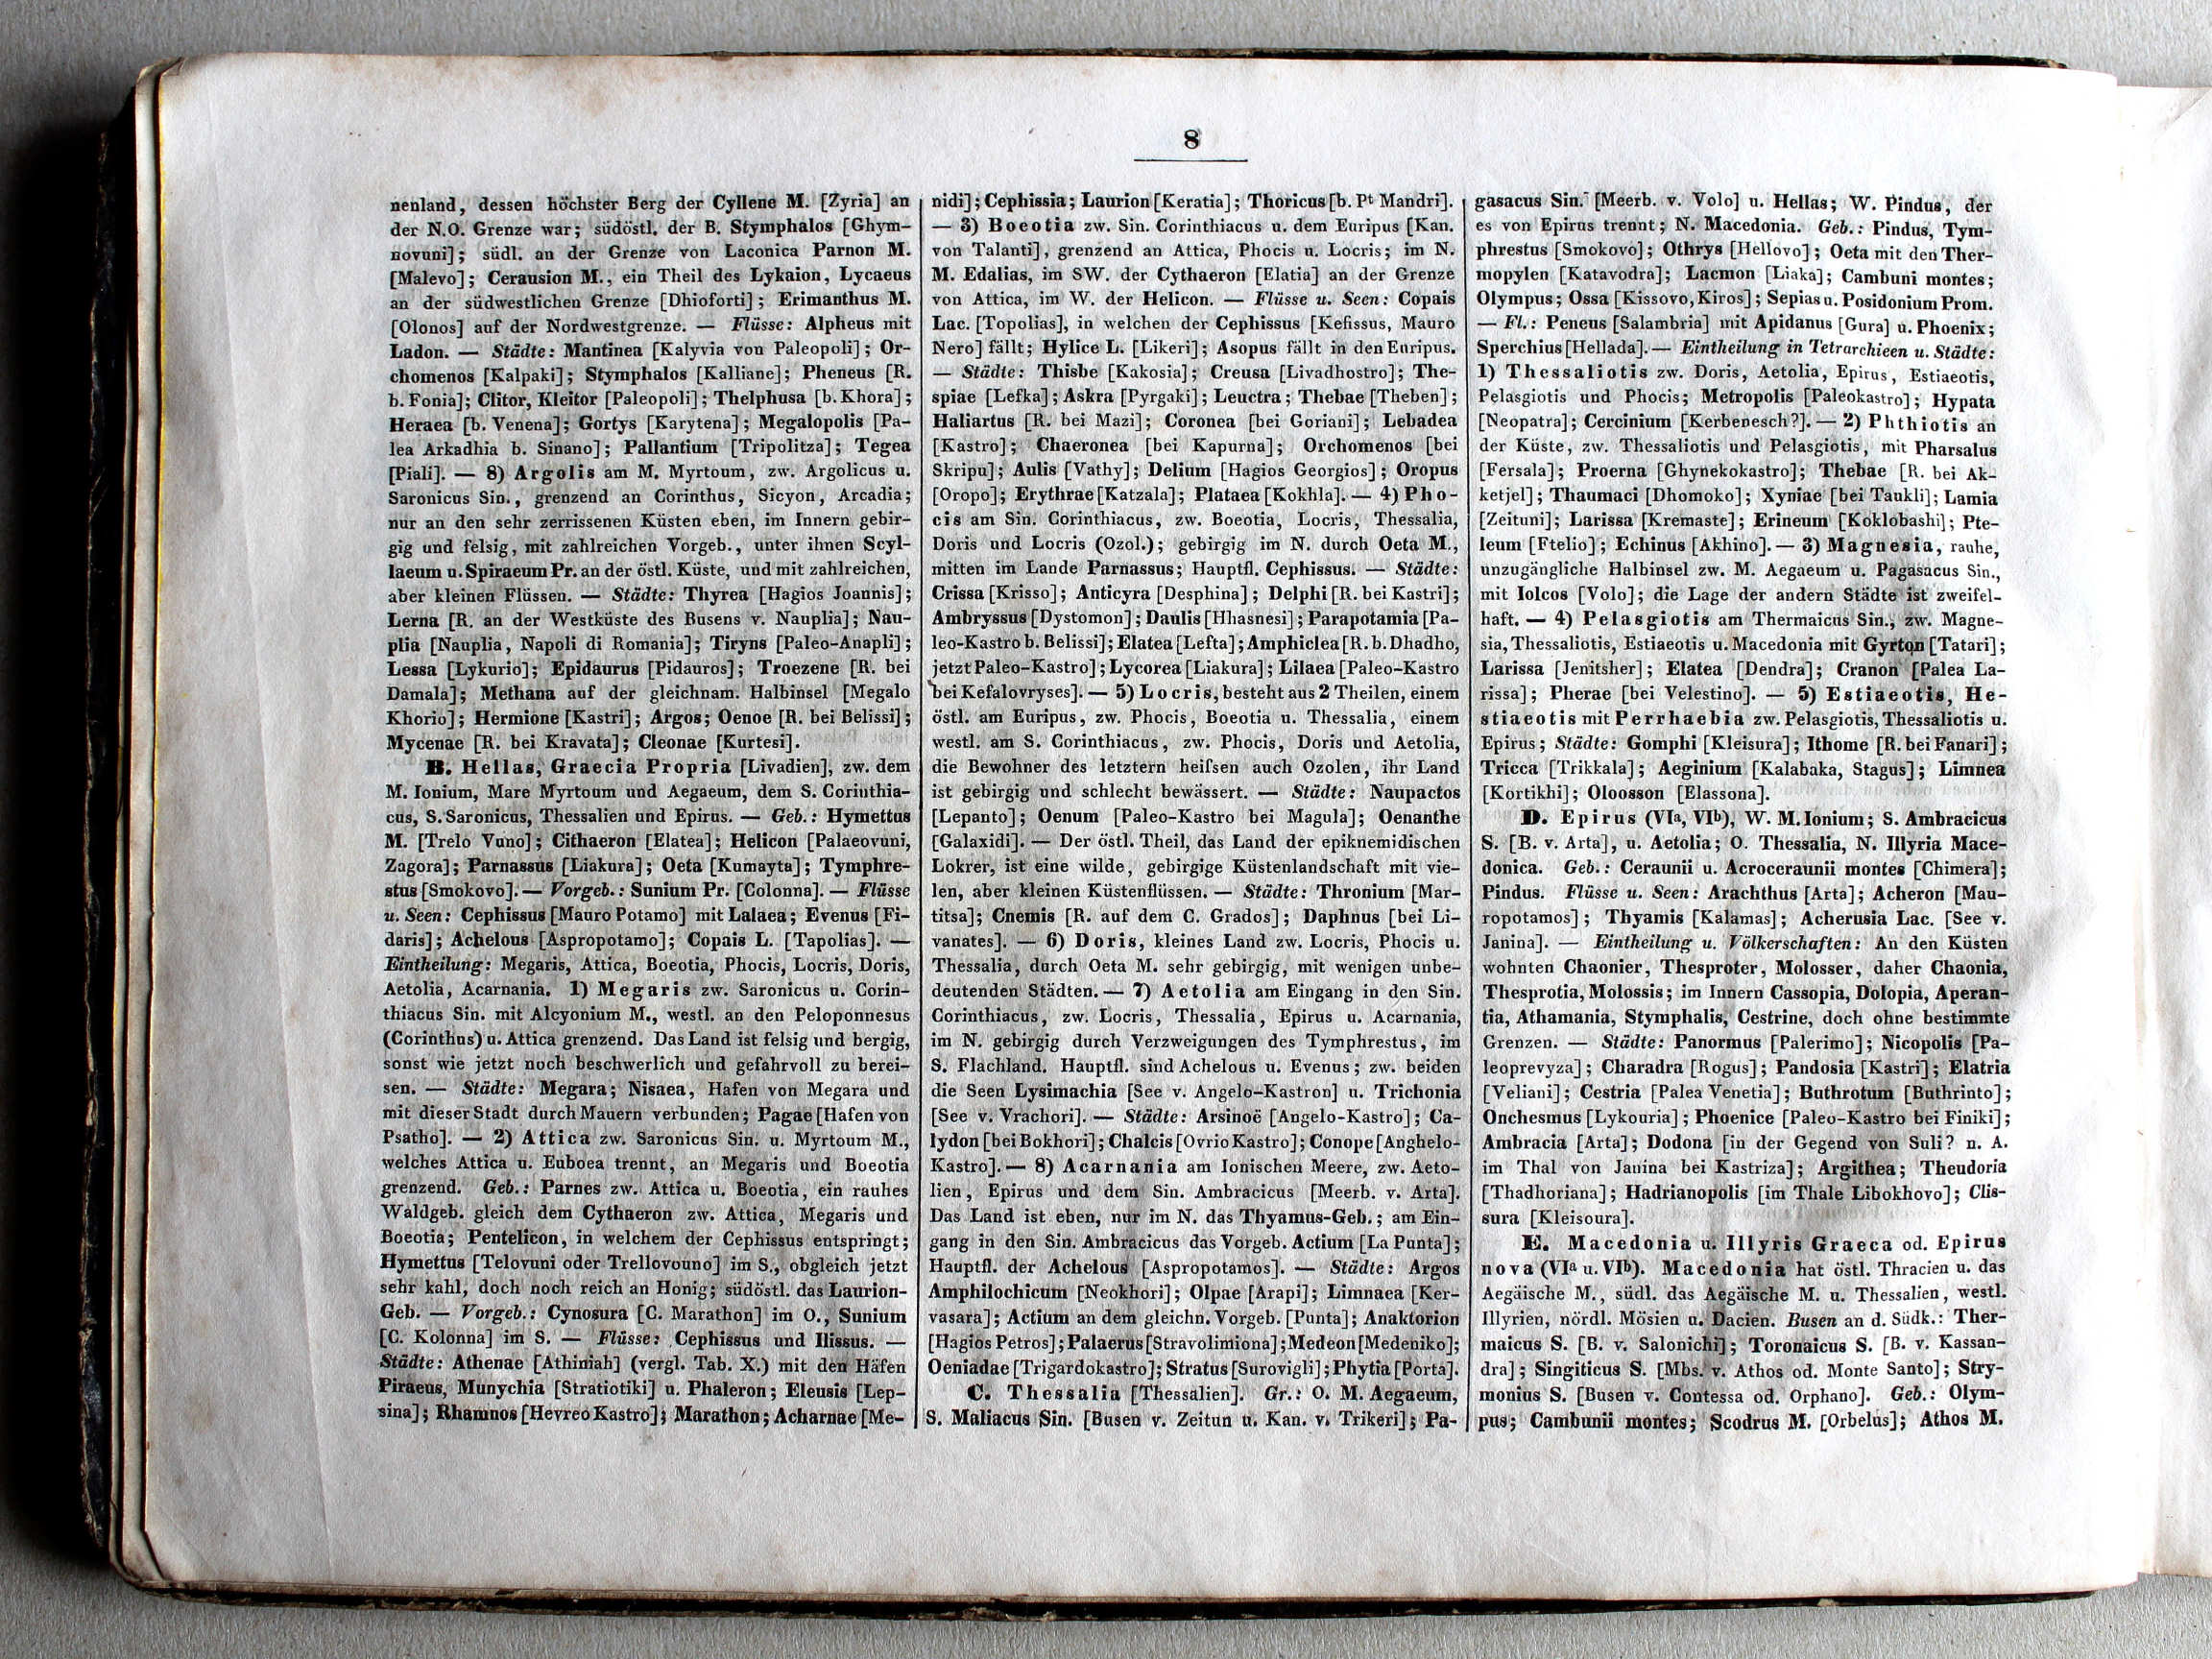 8
nenland, dessen höchster Berg der Cyllene M. [Zyria] an
der N.O. Grenze war; südöstl. der B. Stymphalos [Ghym-
novuni]; südl. an der Grenze von Laconica Parnon M.
[Malevo]; Cerausion M., ein Theil des Lykaion, Lycaeus
an der südwestlichen Grenze [Dhioforti]; Erimanthus M.
[Olonos] auf der Nordwestgrenze. — Flüsse: Alpheus mit
Ladon. — Städte: Mantinea [Kalyvia von Paleopoli]; Or-
chomenos [Kalpaki]; Stymphalos [Kalliane]; Pheneus [R.
b. Fonia]; Clitor, Kleitor [Paleopoli]; Thelphusa [b. Khora];
Heraea [b. Venena]; Gortys [Karytena]; Megalopolis [Pa-
lea Arkadhia b. Sinano]; Pallantium [Tripolitza]; Tegea
[Piali]. — 8) Argolis am M. Myrtoum, zw. Argolicus u.
Saronicus Sin., grenzend an Corinthus, Sicyon, Arcadia;
nur an den sehr zerrissenen Küsten eben, im Innern gebir-
gig und felsig, mit zahlreichen Vorgeb., unter ihnen Scyl-
laeum u. Spiraeum Pr. an der östl. Küste, und mit zahlreichen,
aber kleinen Flüssen. — Städte: Thyrea [Hagios Joannis];
Lerna [R. an der Westküste des Busens v. Nauplia]; Nau-
plia [Nauplia, Napoli di Romania]; Tiryns [Paleo-Anapli];
Lessa [Lykurio]; Epidaurus [Pidauros]; Troezene [R. bei
Damala]; Methana auf der gleichnam. Halbinsel [Megalo
Khorio]; Hermione [Kastri]; Argos; Oenoe [R. bei Belissi];
Mycenae [R. bei Kravata]; Cleonae [Kurtesi].
B. Hellas, Graecia Propria [Livadien], zw. dem
M. Ionium, Mare Myrtoum und Aegaeum, dem S. Corinthia-
cus, S. Saronicus, Thessalien und Epirus. — Geb.: Hymettus
M. [Trelo Vuno]; Cithaeron [Elatea]; Helicon [Palaeovuni,
Zagora]; Parnassus [Liakura]; Oeta [Kumayta]; Tymphre-
stus [Smokovo]. — Vorgeb.: Sunium Pr. [Colonna]. — Flüsse
u. Seen: Cephissus [Mauro Potamo] mit Lalaea; Evenus [Fi-
daris]; Achelous [Aspropotamo]; Copais L. [Tapolias]. —
Eintheilung: Megaris, Attica, Boeotia, Phocis, Locris, Doris,
Aetolia, Acarnania. 1) Megaris zw. Saronicus u. Corin-
thiacus Sin. mit Alcyonium M., westl. an den Peloponnesus
(Corinthus) u. Attica grenzend. Das Land ist felsig und bergig,
sonst wie jetzt noch beschwerlich und gefahrvoll zu berei-
sen. — Städte: Megara; Nisaea, Hafen von Megara und
mit dieser Stadt durch Mauern verbunden; Pagae [Hafen von
Psatho]. — 2) Attica zw. Saronicus Sin. u. Myrtoum M.,
welches Attica u. Euboea trennt, an Megaris und Boeotia
grenzend. Geb.: Parnes zw. Attica u. Boeotia, ein rauhes
Waldgeb. gleich dem Cythaeron zw. Attica, Megaris und
Boeotia; Pentelicon, in welchem der Cephissus entspringt;
Hymettus [Telovuni oder Trellovouno] im S., obgleich jetzt
sehr kahl, doch noch reich an Honig; südöstl. das Laurion-
Geb. — Vorgeb.: Cynosura [C. Marathon] im O., Sunium
[C. Kolonna] im S. — Flüsse: Cephissus und Ilissus. —
Städte: Athenae [Athiniah] (vergl. Tab. X.) mit den Häfen
Piraeus, Munychia [Stratiotiki] u. Phaleron; Eleusis [Lep-
sina]; Rhamnos [Hevreo Kastro]; Marathon; Acharnae [Me-
nidi]; Cephissia; Laurion [Keratia]; Thoricus [b. Pt Mandri].
— 3) Boeotia zw. Sin. Corinthiacus u. dem Euripus [Kan.
von Talanti], grenzend an Attica, Phocis u. Locris; im N.
M. Edalias, im SW. der Cythaeron [Elatia] an der Grenze
von Attica, im W. der Helicon. — Flüsse u. Seen: Copais
Lac. [Topolias], in welchen der Cephissus [Kefissus, Mauro
Nero] fällt; Hylice L. [Likeri]; Asopus fällt in den Euripus.
— Städte: Thisbe [Kakosia]; Creusa [Livadhostro]; The-
spiae [Lefka]; Askra [Pyrgaki]; Leuctra; Thebae [Theben];
Haliartus [R. bei Mazi]; Coronea [bei Goriani]; Lebadea
[Kastro]; Chaeronea [bei Kapurna]; Orchomenos [bei
Skripu]; Aulis [Vathy]; Delium [Hagios Georgios]; Oropus
[Oropo]; Erythrae [Katzala]; Plataea [Kokhla]. — 4) Pho-
cis am Sin. Corinthiacus, zw. Boeotia, Locris, Thessalia,
Doris und Locris (Ozol.); gebirgig im N. durch Oeta M.,
mitten im Lande Parnassus; Hauptfl. Cephissus. — Städte:
Crissa [Krisso]; Anticyra [Desphina]; Delphi [R. bei Kastri];
Ambryssus [Dystomon]; Daulis [Hhasnesi]; Parapotamia [Pa-
leo-Kastro b. Belissi]; Elatea [Lefta]; Amphiclea [R. b. Dhadho,
jetzt Paleo-Kastro]; Lycorea [Liakura]; Lilaea [Paleo-Kastro
bei Kefalovryses]. — 5) Locris, besteht aus 2 Theilen, einem
östl. am Euripus, zw. Phocis, Boeotia u. Thessalia, einem
westl. am S. Corinthiacus, zw. Phocis, Doris und Aetolia,
die Bewohner des letztern heifsen auch Ozolen, ihr Land
ist gebirgig und schlecht bewässert. — Städte: Naupactos
[Lepanto]; Oenum [Paleo-Kastro bei Magula]; Oenanthe
[Galaxidi]. — Der östl. Theil, das Land der epiknemidischen
Lokrer, ist eine wilde, gebirgige Küstenlandschaft mit vie-
len, aber kleinen Küstenflüssen. — Städte: Thronium [Mar-
titsa]; Cnemis [R. auf dem C. Grados]; Daphnus [bei Li-
vanates]. — 6) Doris, kleines Land zw. Locris, Phocis u.
Thessalia, durch Oeta M. sehr gebirgig, mit wenigen unbe-
deutenden Städten. — 7) Aetolia am Eingang in den Sin.
Corinthiacus, zw. Locris, Thessalia, Epirus u. Acarnania,
im N. gebirgig durch Verzweigungen des Tymphrestus, im
S. Flachland. Hauptfl. sind Achelous u. Evenus; zw. beiden
die Seen Lysimachia [See v. Angelo-Kastron] u. Trichonia
[See v. Vrachori]. — Städte: Arsinoë [Angelo-Kastro]; Ca-
lydon [bei Bokhori]; Chalcis [Ovrio Kastro]; Conope [Anghelo-
Kastro]. — 8) Acarnania am Ionischen Meere, zw. Aeto-
lien, Epirus und dem Sin. Ambracicus [Meerb. v. Arta].
Das Land ist eben, nur im N. das Thyamus-Geb.; am Ein-
gang in den Sin. Ambracicus das Vorgeb. Actium [La Punta];
Hauptfl. der Achelous [Aspropotamos]. — Städte: Argos
Amphilochicum [Neokhori]; Olpae [Arapi]; Limnaea [Ker-
vasara]; Actium an dem gleichn. Vorgeb. [Punta]; Anaktorion
[Hagios Petros]; Palaerus [Stravolimiona]; Medeon [Medeniko];
Oeniadae [Trigardokastro]; Stratus [Surovigli]; Phytia [Porta].
C. Thessalia [Thessalien]. Gr.: O. M. Aegaeum,
S. Maliacus Sin. [Busen v. Zeitun u. Kan. v. Trikeri]; Pa-
gasacus Sin. [Meerb. v. Volo] u. Hellas; W. Pindus, der
es von Epirus trennt; N. Macedonia. Geb.: Pindus, Tym-
phrestus [Smokovo]; Othrys [Hellovo]; Oeta mit den Ther-
mopylen [Katavodra]; Lacmon [Liaka]; Cambuni montes;
Olympus; Ossa [Kissovo, Kiros]; Sepias u. Posidonium Prom.
— Fl.: Peneus [Salambria] mit Apidanus [Gura] u. Phoenix;
Sperchius [Hellada]. — Eintheilung in Tetrarchieen u. Städte:
1) Thessaliotis zw. Doris, Aetolia, Epirus, Estiaeotis,
Pelasgiotis und Phocis; Metropolis [Paleokastro]; Hypata
[Neopatra]; Cercinium [Kerbenesch?]. — 2) Phthiotis an
der Küste, zw. Thessaliotis und Pelasgiotis, mit Pharsalus
[Fersala]; Proerna [Ghynekokastro]; Thebae [R. bei Ak-
ketjel]; Thaumaci [Dhomoko]; Xyniae [bei Taukli]; Lamia
[Zeituni]; Larissa [Kremaste]; Erineum [Koklobashi]; Pte-
leum [Ftelio]; Echinus [Akhino]. — 3) Magnesia, rauhe,
unzugängliche Halbinsel zw. M. Aegaeum u. Pagasacus Sin.,
mit Iolcos [Volo]; die Lage der andern Städte ist zweifel-
haft. — 4) Pelasgiotis am Thermaicus Sin., zw. Magne-
sia, Thessaliotis, Estiaeotis u. Macedonia mit Gyrton [Tatari];
Larissa [Jenitsher]; Elatea [Dendra]; Cranon [Palea La-
rissa]; Pherae [bei Velestino]. — 5) Estiaeotis, He-
stiaeotis mit Perrhaebia zw. Pelasgiotis, Thessaliotis u.
Epirus; Städte: Gomphi [Kleisura]; Ithome [R. bei Fanari];
Tricca [Trikkala]; Aeginium [Kalabaka, Stagus]; Limnea
[Kortikhi]; Oloosson [Elassona].
D. Epirus (VIa, VIb), W. M. Ionium; S. Ambracicus
S. [B. v. Arta], u. Aetolia; O. Thessalia, N. Illyria Mace-
donica. Geb.: Ceraunii u. Acroceraunii montes [Chimera];
Pindus. Flüsse u. Seen: Arachthus [Arta]; Acheron [Mau-
ropotamos]; Thyamis [Kalamas]; Acherusia Lac. [See v.
Janina]. — Eintheilung u. Völkerschaften: An den Küsten
wohnten Chaonier, Thesproter, Molosser, daher Chaonia,
Thesprotia, Molossis; im Innern Cassopia, Dolopia, Aperan-
tia, Athamania, Stymphalis, Cestrine, doch ohne bestimmte
Grenzen. — Städte: Panormus [Palerimo]; Nicopolis [Pa-
leoprevyza]; Charadra [Rogus]; Pandosia [Kastri]; Elatria
[Veliani]; Cestria [Palea Venetia]; Buthrotum [Buthrinto];
Onchesmus [Lykouria]; Phoenice [Paleo-Kastro bei Finiki];
Ambracia [Arta]; Dodona [in der Gegend von Suli? n. A.
im Thal von Janina bei Kastriza]; Argithea; Theudoria
[Thadhoriana]; Hadrianopolis [im Thale Libokhovo]; Clis-
sura [Kleisoura].
E. Macedonia u. Illyris Graeca od. Epirus
nova (VIa u. VIb). Macedonia hat östl. Thracien u. das
Aegäische M., südl. das Aegäische M. u. Thessalien, westl.
Illyrien, nördl. Mösien u. Dacien. Busen an d. Südk.: Ther-
maicus S. [B. v. Salonichi]; Toronaicus S. [B. v. Kassan-
dra]; Singiticus S. [Mbs. v. Athos od. Monte Santo]; Stry-
monius S. [Busen v. Contessa od. Orphano]. Geb.: Olym-
pus; Cambunii montes; Scodrus M. [Orbelus]; Athos M.